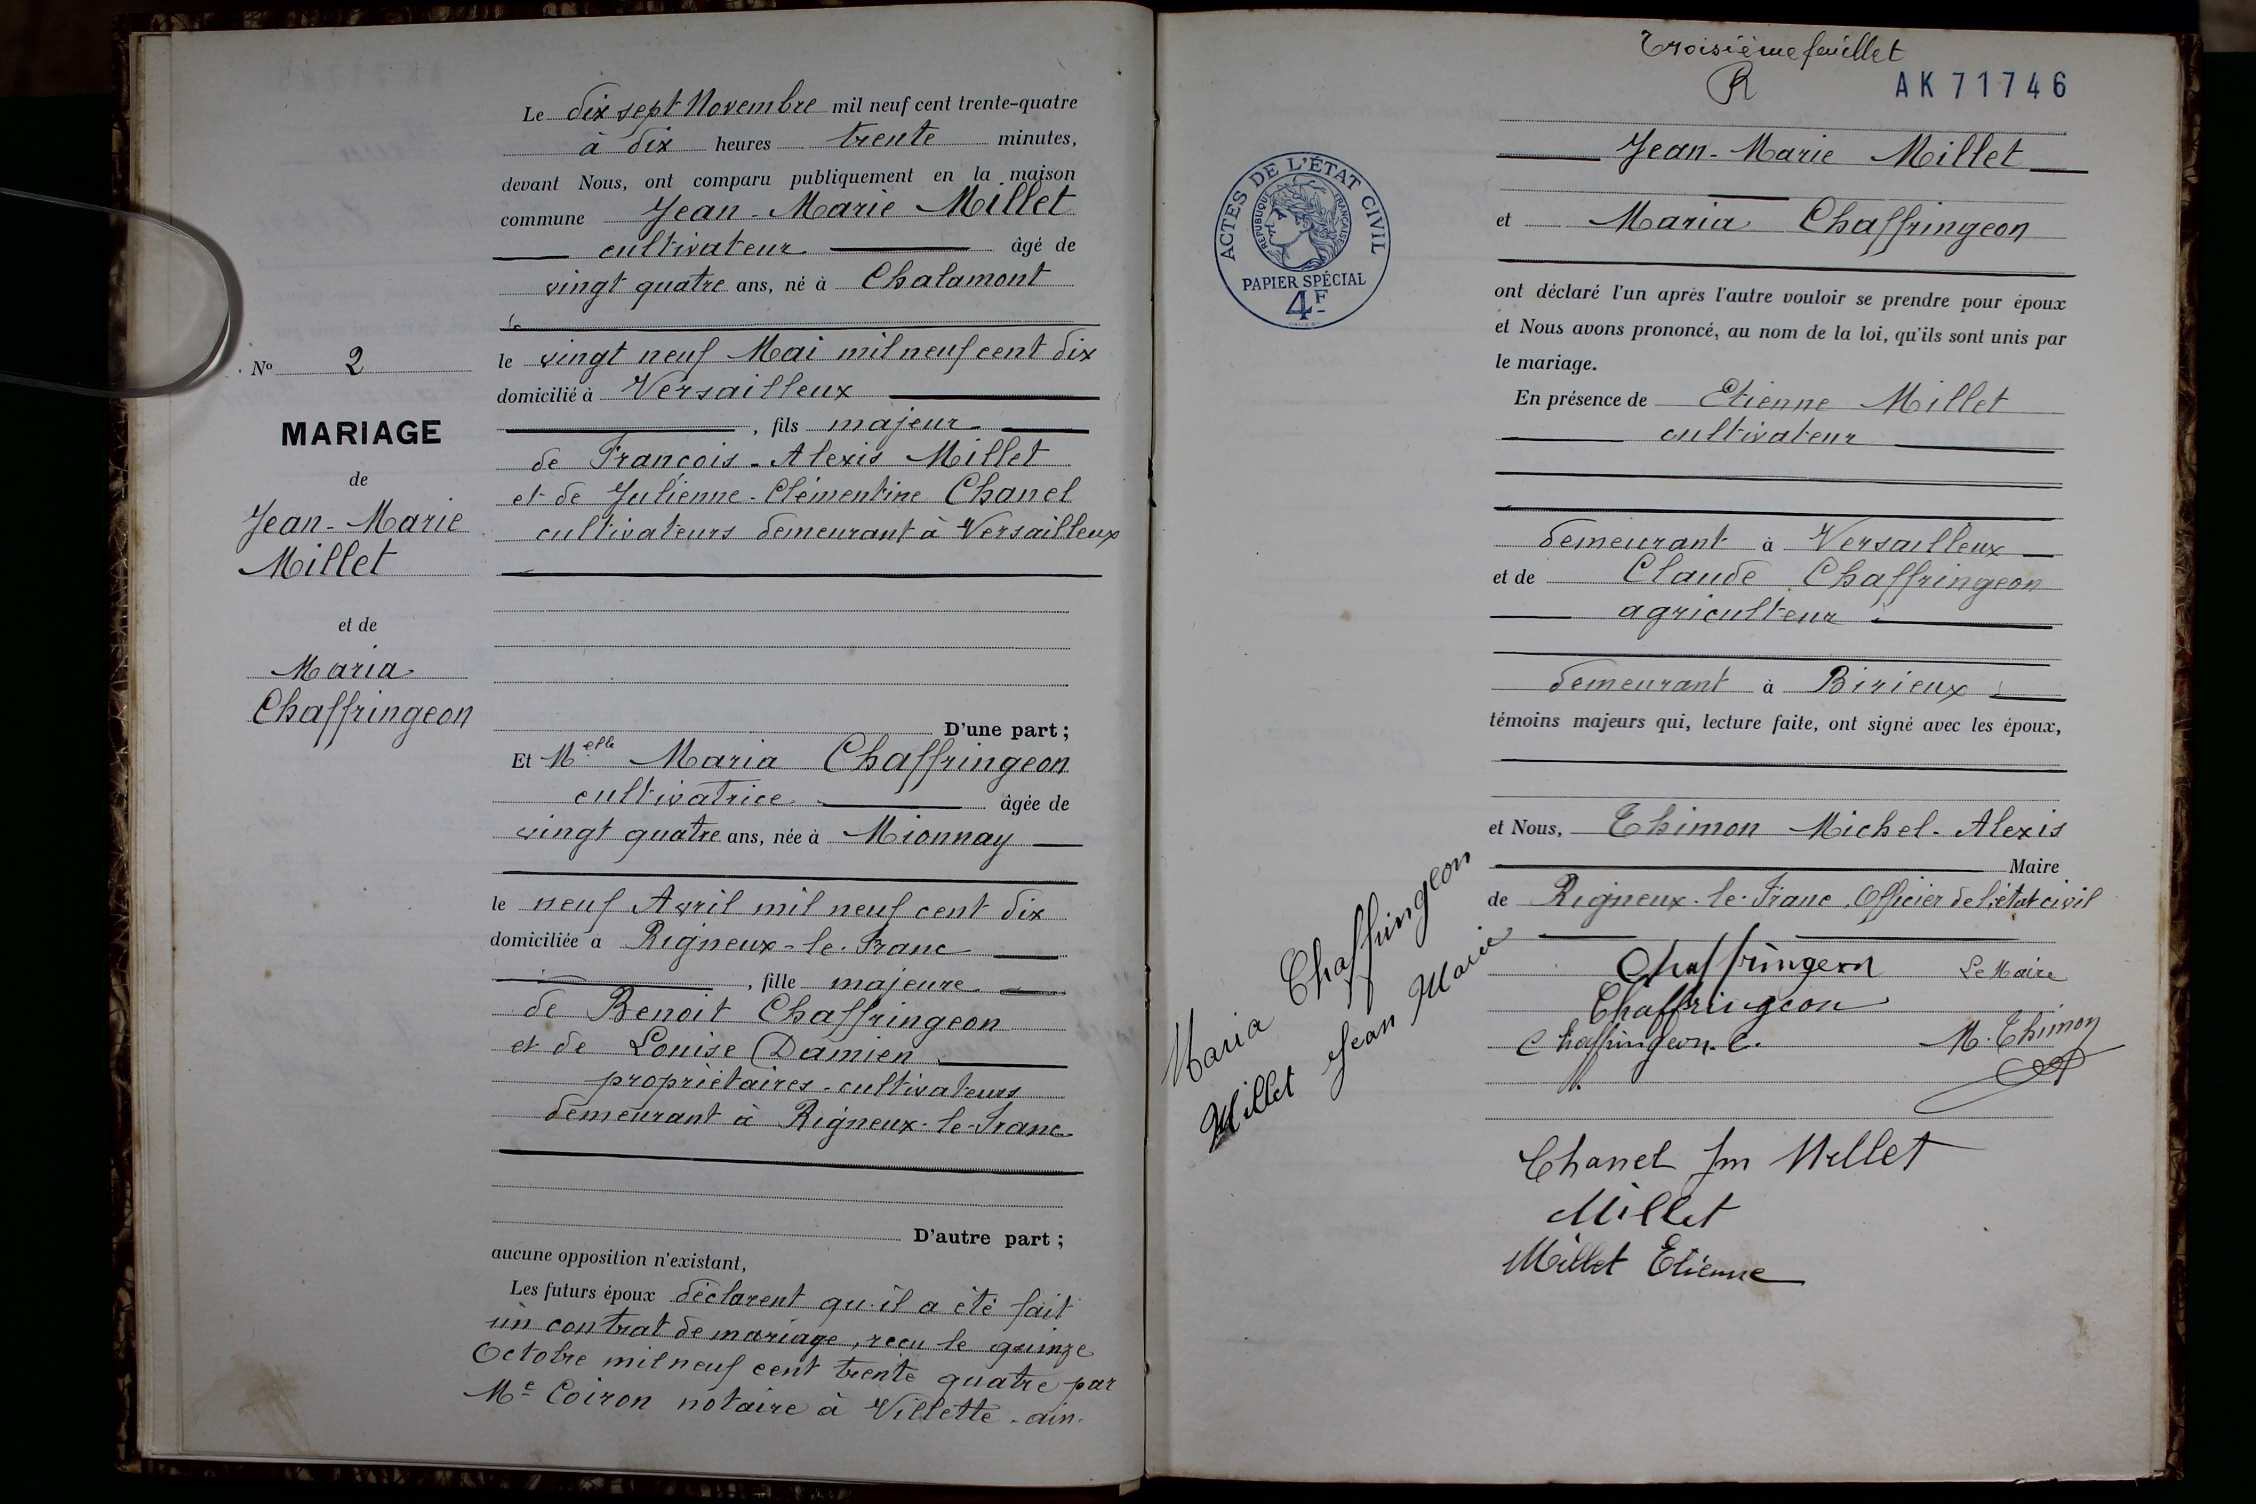 Le dix sept Novembre mil neuf cent trente-quatre
à dix heures trente minutes,
devant Nous, ont comparu publiquement en la maison
commune Jean-Marie Millet
cultivateur âgé de
vingt quatre ans, né à Chalamont
le vingt neuf Mai mil neuf cent dix
domicilié à Versailleux
, fils majeur
de François-Alexis Millet
et de Julienne-Clémentine Chanel
cultivateurs demeurant à Versailleux
D'une part ;
Et Melle Maria Chaffringeon
cultivatrice âgée de
vingt quatre ans, née à Mionnay
le neuf Avril mil neuf cent dix
domiciliée à Rigneux-le-Franc
, fille majeure
de Benoit Chaffringeon
et de Louise Damien
propriétaires-cultivateurs
demeurant à Rigneux-le-Franc
D'autre part ;
aucune opposition n'existant,
Les futurs époux déclarent qu'il a été fait
un contrat de mariage, reçu le quinze
Octobre mil neuf cent trente quatre par
Me Coiron notaire à Villette-ain.
No 2
MARIAGE
de
Jean-Marie
Millet
et de
Maria
Chaffringeon
Troisième feuillet
R
AK71746
ACTES DE L'ÉTAT CIVIL
RÉPUBLIQUE FRANÇAISE
PAPIER SPÉCIAL
4F
Jean-Marie Millet
et Maria Chaffringeon
ont déclaré l'un après l'autre vouloir se prendre pour époux
et Nous avons prononcé, au nom de la loi, qu'ils sont unis par
le mariage.
En présence de Etienne Millet
cultivateur
demeurant à Versailleux
et de Claude Chaffringeon
agriculteur
demeurant à Birieux
témoins majeurs qui, lecture faite, ont signé avec les époux,
et Nous, Thimon Michel-Alexis
Maire
de Rigneux-le-Franc, Officier de l'état civil
Chaffringeon Le Maire
Chaffringeon
Chaffringeon. C. M. Thimon
Maria Chaffringeon
Millet Jean Marie
Chanel fm Millet
Millet
Millet Etienne